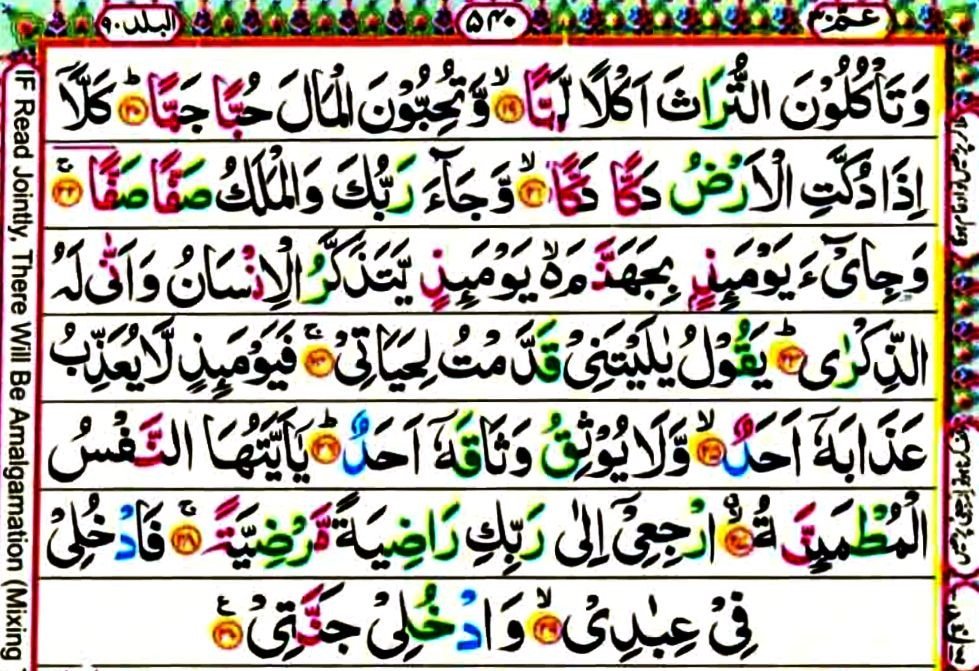 عَمَّ ٣٠
٥٤٠
البلد ٩٠
وَتَاْكُلُوْنَ التُّرَاثَ اَكْلًا لَّمًّا ۙ‏﴿۱۹﴾ وَّتُحِبُّوْنَ الْمَالَ حُبًّا جَمًّا ؕ‏﴿۲۰﴾ كَلَّاۤ
اِذَا دُكَّتِ الْاَرْضُ دَكًّا دَكًّا ۙ‏﴿۲۱﴾ وَّجَآءَ رَبُّكَ وَالْمَلَكُ صَفًّا صَفًّا ۚ‏﴿۲۲﴾
وَجِایْٓءَ يَوْمَىِٕذٍۭ بِجَهَنَّمَ ۙ يَوْمَىِٕذٍ يَّتَذَكَّرُ الْاِنْسَانُ وَاَنّٰى لَهُ
الذِّكْرٰى ؕ‏﴿۲۳﴾ يَقُوْلُ يٰلَيْتَنِىْ قَدَّمْتُ لِحَيَاتِىْ ۚ‏﴿۲۴﴾ فَيَوْمَىِٕذٍ لَّا يُعَذِّبُ
عَذَابَهٗۤ اَحَدٌ ۙ‏﴿۲۵﴾ وَّلَا يُوْثِقُ وَثَاقَهٗۤ اَحَدٌ ؕ‏﴿۲۶﴾ يٰۤاَيَّتُهَا النَّفْسُ
الْمُطْمَىِٕنَّةُ ۖ‏﴿۲۷﴾ ارْجِعِىْۤ اِلٰى رَبِّكِ رَاضِيَةً مَّرْضِيَّةً ۚ‏﴿۲۸﴾ فَادْخُلِىْ
فِىْ عِبٰدِىْ ۙ‏﴿۲۹﴾ وَادْخُلِىْ جَنَّتِىْ ‏﴿۳۰﴾
IF Read Jointly, There Will Be Amalgamation (Mixing